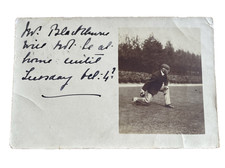 Mr. Blackburne
will not be at
home until
Tuesday Feb: 4th